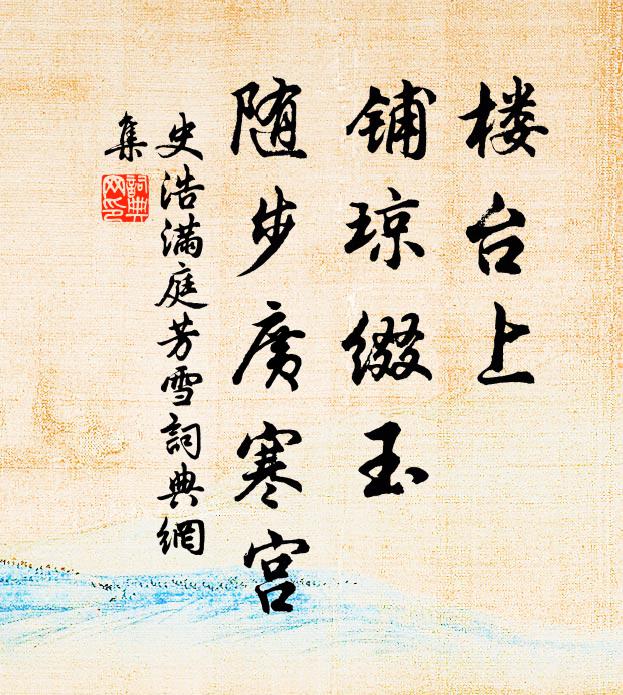 楼台上
铺琼缀玉
随步廣寒宫
史浩满庭芳雪詞典網
集
詞典
网印